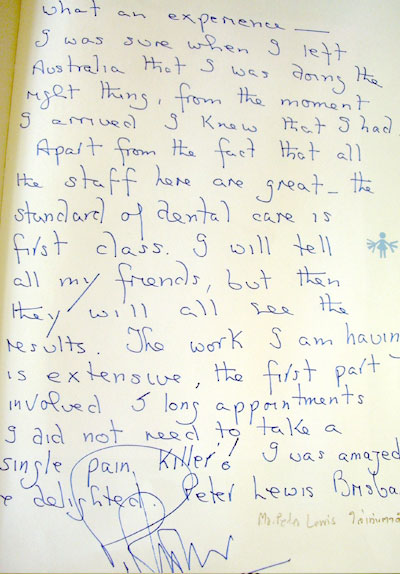 what an experience —
I was sure when I left
Australia that I was doing the
right thing, from the moment
I arrived I knew that I had.
Apart from the fact that all
the staff here are great - the
standard of dental care is
first class. I will tell
all my friends, but then
they will all see the
results. The work I am having
is extensive, the first part
involved 5 long appointments
I did not need to take a
single pain killer! I was amazed
& delighted. Peter Lewis Brisba
Mr. Peter Lewis